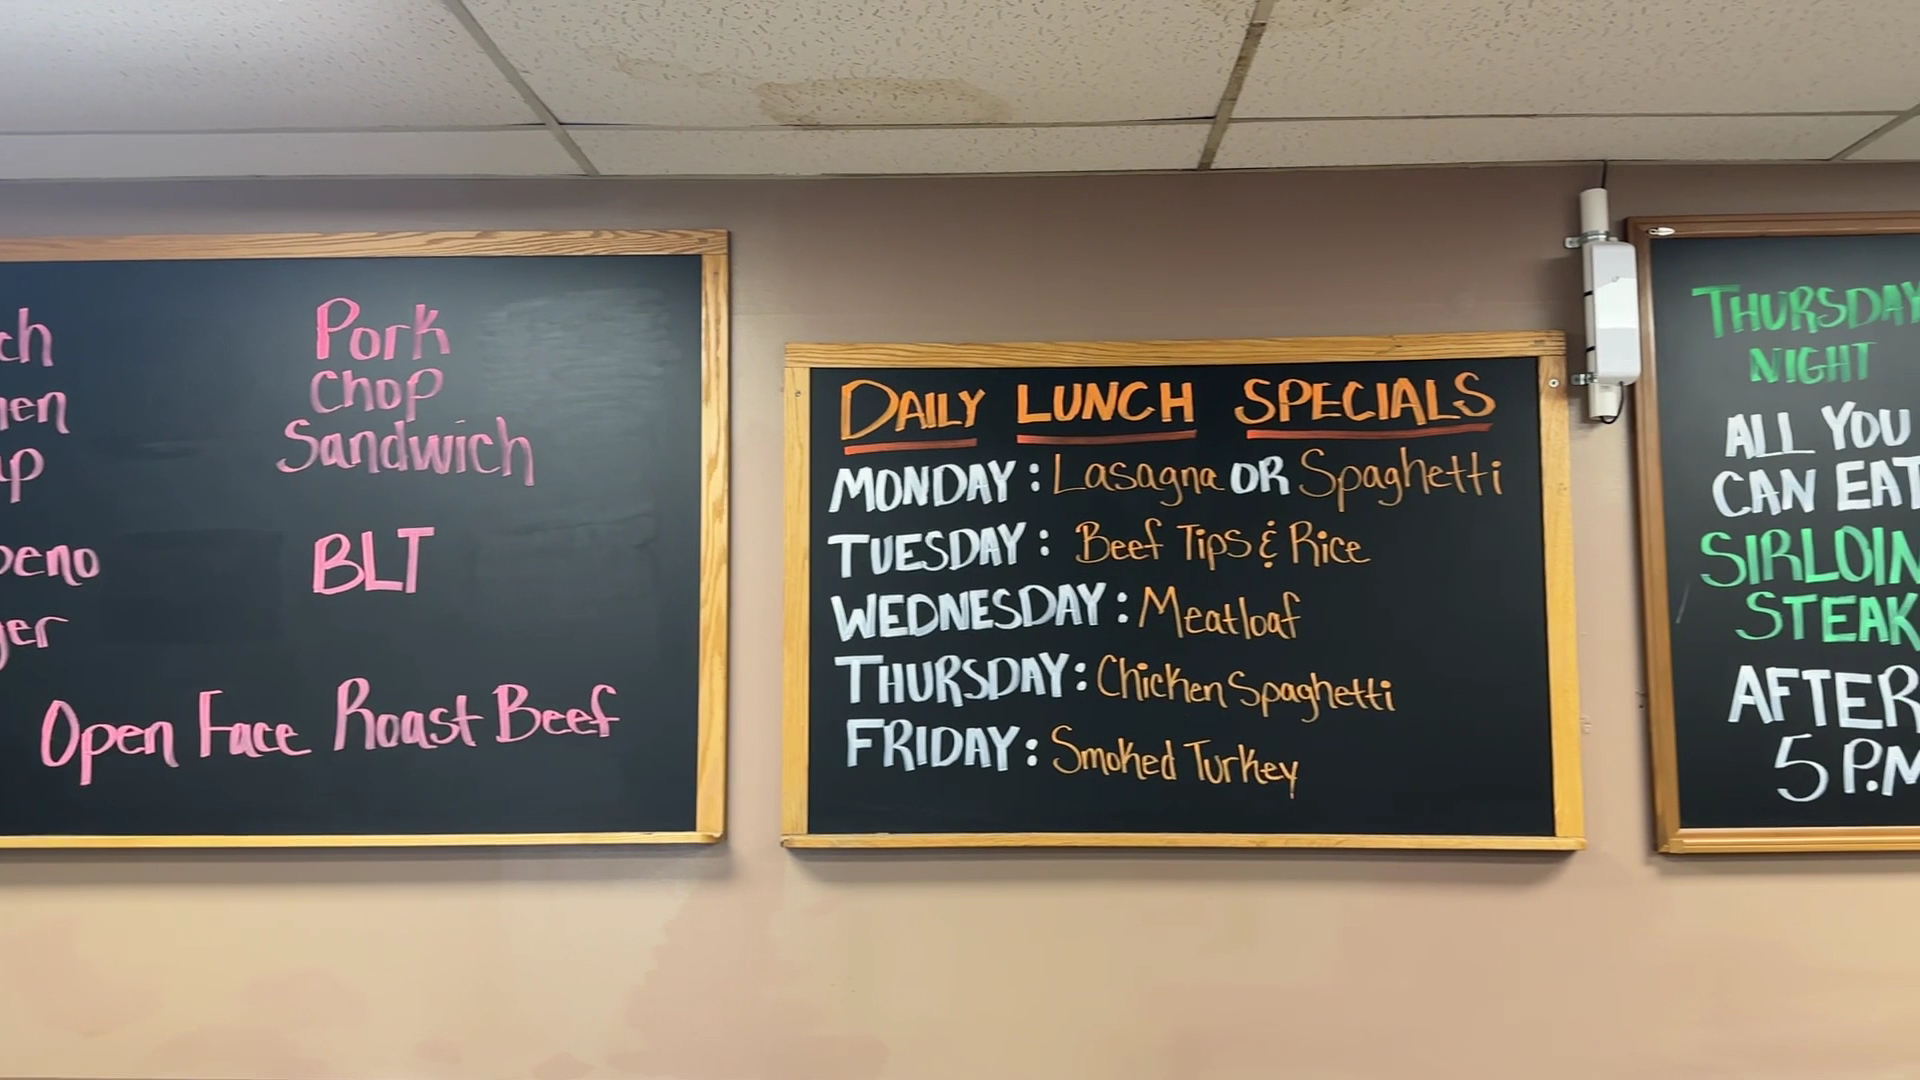 Pork
Chop
Sandwich
BLT
Open Face Roast Beef
DAILY LUNCH SPECIALS
MONDAY: Lasagna OR Spaghetti
TUESDAY: Beef Tips & Rice
WEDNESDAY: Meatloaf
THURSDAY: Chicken Spaghetti
FRIDAY: Smoked Turkey
THURSDAY
NIGHT
ALL YOU
CAN EAT
SIRLOIN
STEAK
AFTER
5 P.M